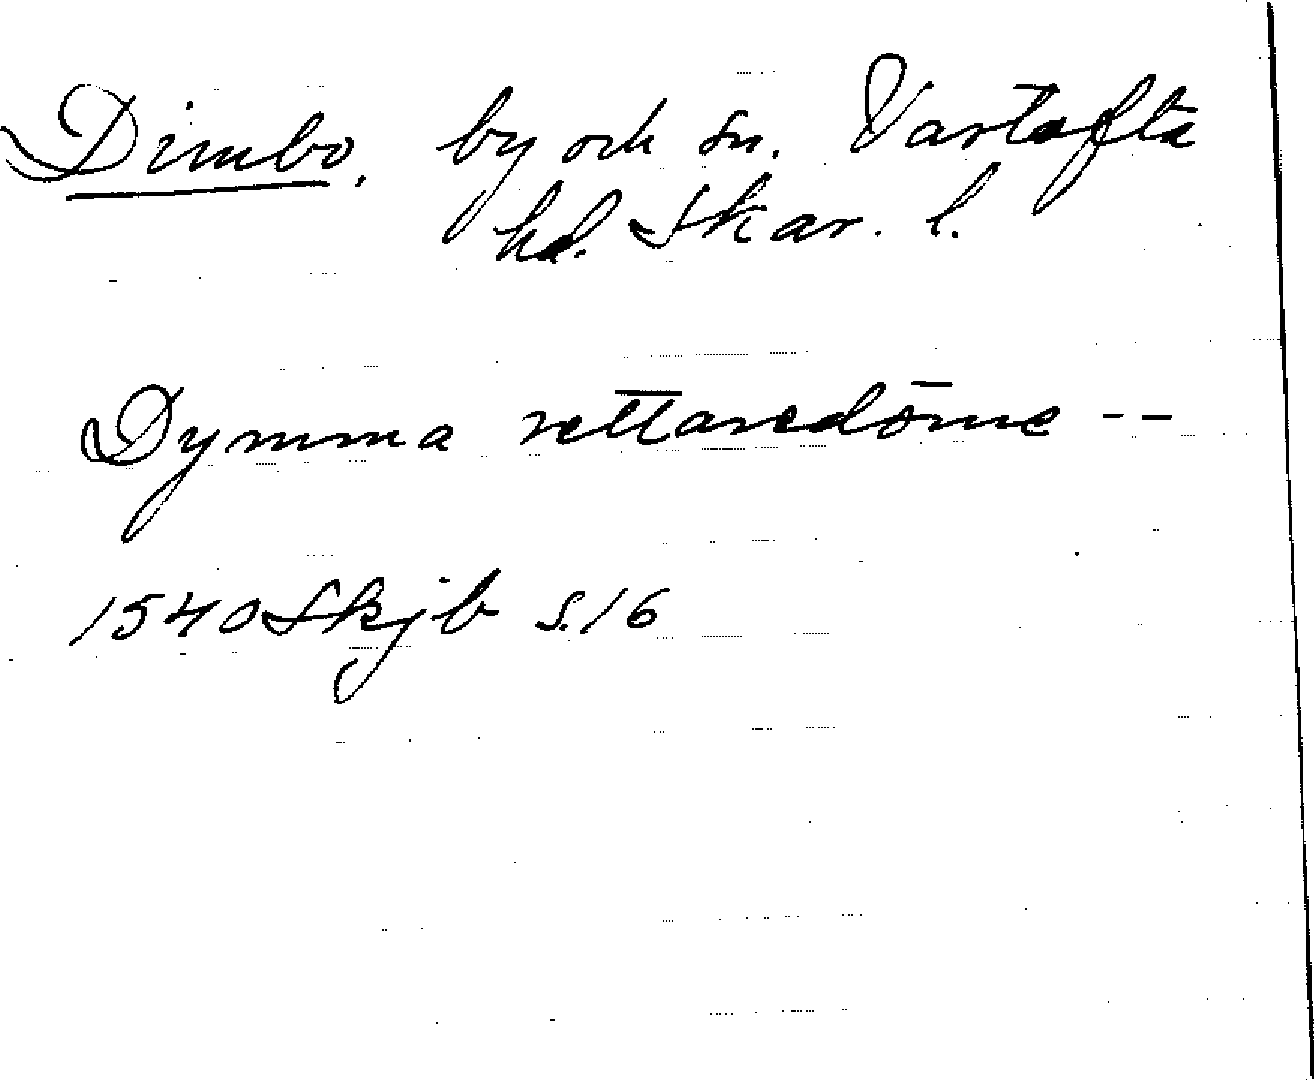 Dimbo, by och sn. Vartofta
hd. Skar. l.
Dymma rettaredöme --
1540 Skjb s. 16